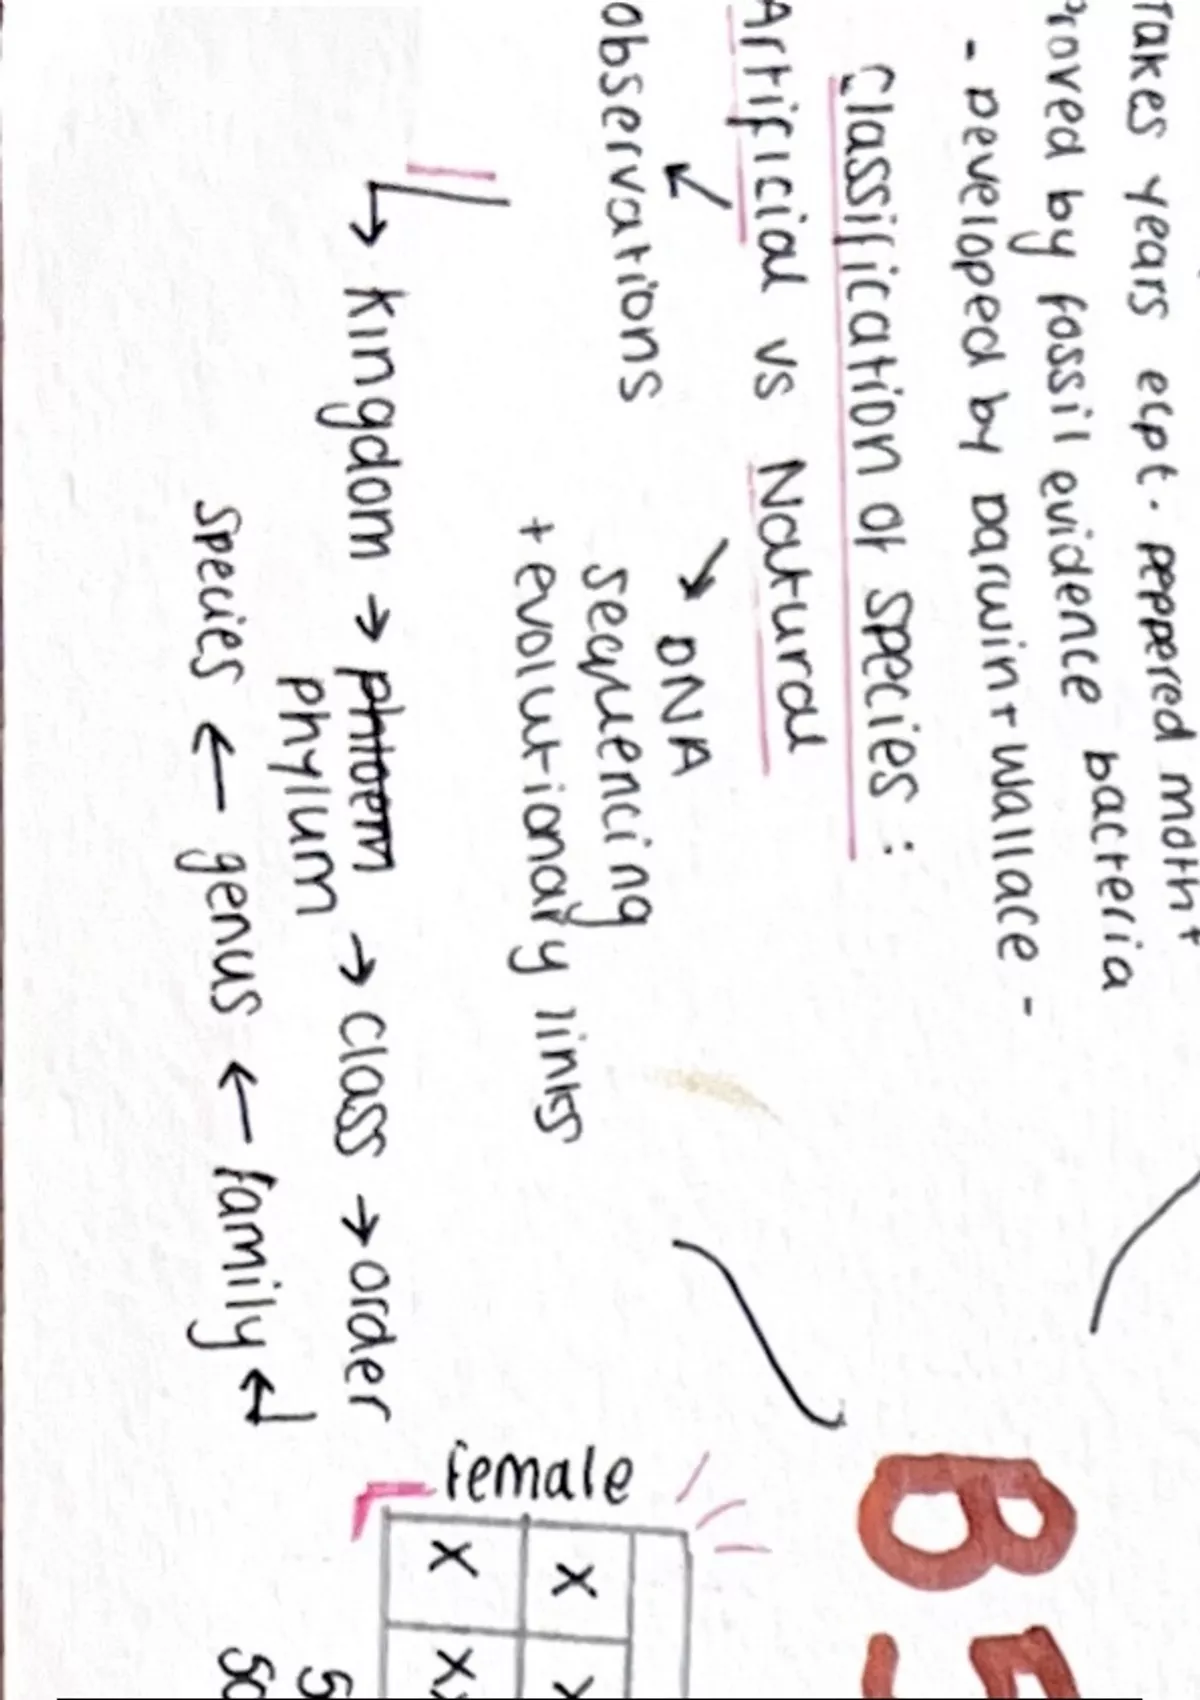 Takes years ecpt. peppered moth +
proved by fossil evidence bacteria
- Developed by Darwin + Wallace -
Classification of species :
Artificial vs Natural
observations
DNA
sequencing
+ evolutionary links
↳ kingdom → phloem → class → order
phylum
species ← genus ← family ↵
female
X X
X X
B